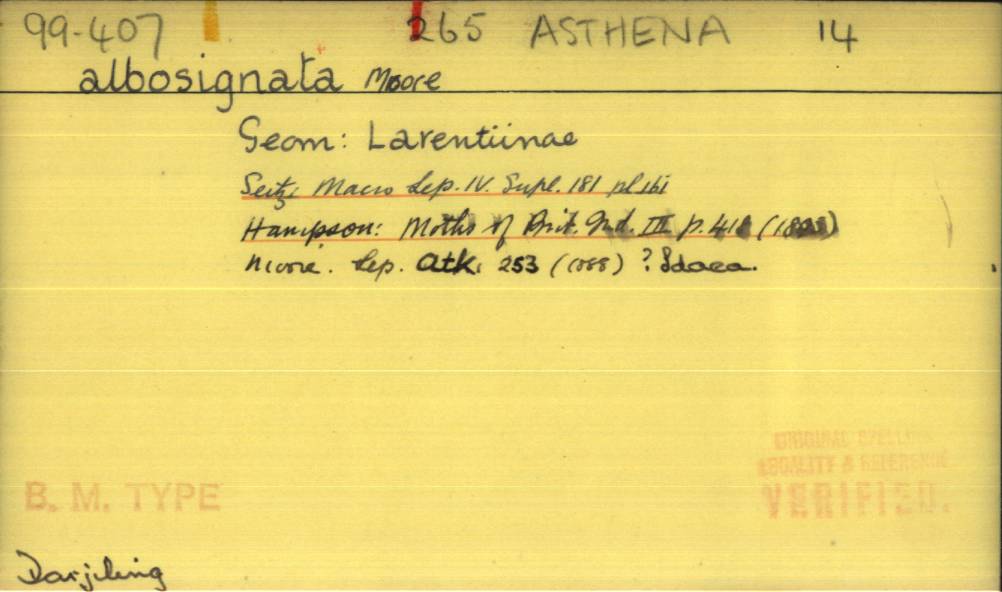 99-407 265 ASTHENA 14
albosignata Moore
Geom: Larentiinae
Seitz, Macro Lep. IV. Supl. 181 pl 16i
Hampson: Moths of Brit. Ind. III p. 418 (
Moore. Lep. Atk. 253 (1888) ? Idaea.
ORIGINAL SPELLING
LOCALITY & REFERENCE
B. M. TYPE
VERIFIED.
Darjiling